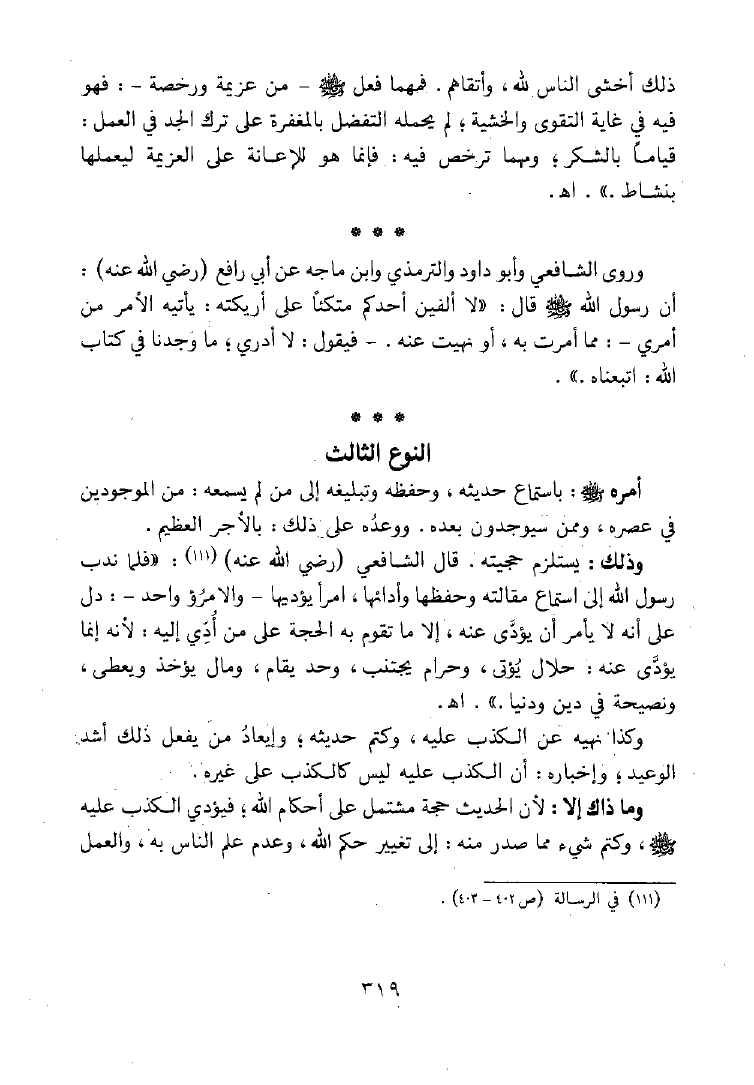 ذلك أخشى الناس لله ، وأتقاهم . فمهما فعل ﷺ - من عزيمة ورخصة - : فهو
فيه في غاية التقوى والخشية ؛ لم يحمله التفضل بالمغفرة على ترك الجد في العمل :
قياماً بالشكر ؛ ومهما ترخص فيه : فإنما هو للإعانة على العزيمة ليعملها
بنشاط .» . اهـ .
* * *
وروى الشافعي وأبو داود والترمذي وابن ماجه عن أبي رافع (رضي الله عنه) :
أن رسول الله ﷺ قال : «لا ألفين أحدكم متكئاً على أريكته : يأتيه الأمر من
أمري - : مما أمرت به ، أو نهيت عنه . - فيقول : لا أدري ؛ ما وجدنا في كتاب
الله : اتبعناه .» .
* * *
النوع الثالث
أمره ﷺ : باستماع حديثه ، وحفظه وتبليغه إلى من لم يسمعه : من الموجودين
في عصره ، وممن سيوجدون بعده . ووعدُه على ذلك : بالأجر العظيم .
وذلك : يستلزم حجيته . قال الشافعي (رضي الله عنه) (١١١) : «فلما ندب
رسول الله إلى استماع مقالته وحفظها وأدائها ، امرأ يؤديها - والامرُؤ واحد - : دل
على أنه لا يأمر أن يؤدَّى عنه ، إلا ما تقوم به الحجة على من أُدِّي إليه : لأنه إنما
يؤدَّى عنه : حلال يُؤتى ، وحرام يجتنب ، وحد يقام ، ومال يؤخذ ويعطى ،
ونصيحة في دين ودنيا .» . اهـ .
وكذا نهيه عن الكذب عليه ، وكتم حديثه ؛ وإيعادُ من يفعل ذلك أشد
الوعيد ؛ وإخباره : أن الكذب عليه ليس كالكذب على غيره .
وما ذاك إلا : لأن الحديث حجة مشتمل على أحكام الله ؛ فيؤدي الكذب عليه
ﷺ ، وكتم شيء مما صدر منه : إلى تغيير حكم الله ، وعدم علم الناس به ، والعمل
(١١١) في الرسالة (ص ٤٠٢ - ٤٠٣) .
٣١٩